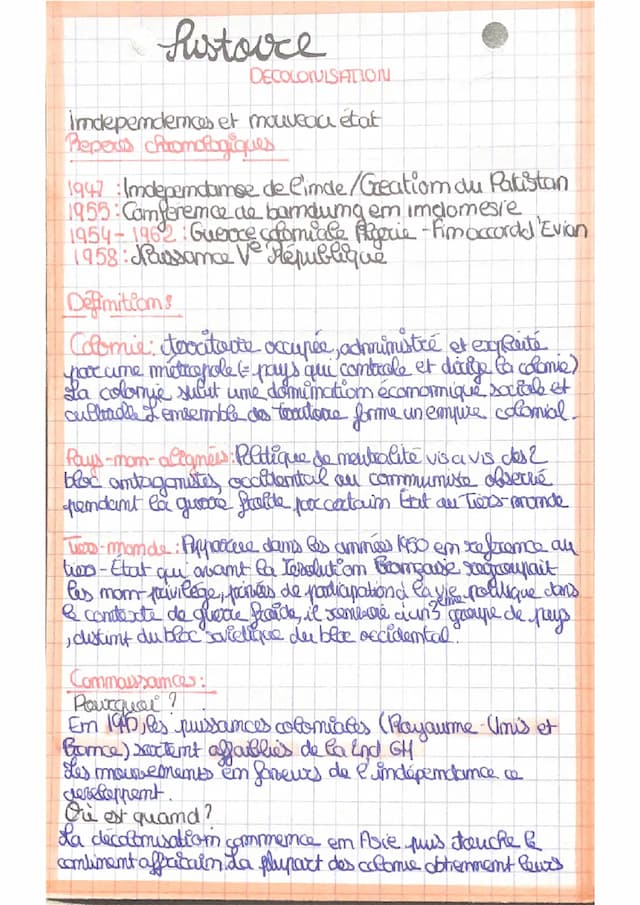 histoire
DECOLONISATION
independences et nouveau état
Reperes chronologiques
1947 : Independanse de l'inde / Creation du Pakistan
1955 : Conference de bamdung en indonesie
1954 - 1962 : Guerre coloniale Algerie - Fin accord d'Evian
1958 : Naissance Ve République
Définitions
Colonie : territoire occupée, administré et exploité
par une métropole (= pays qui controle et dirige la colonie)
La colonie subit une domination économique sociale et
culturelle L'ensemble des territoire forme un empire colonial.
Pays-non-alignés : Politique de neutralité vis a vis des 2
bloc antagonistes, occidental ou communiste observé
pendant la guerre froide par certain État du Tiers-monde
Tiers-monde : Apparue dans les années 1950 en reference au
tiers-État qui avant la Revolution Française regroupait
les non-privilège, privées de participation à la vie politique dans
le contexte de guerre froide, il renvoie à un 3eme groupe de pays
, distint du bloc soviétique du bloc occidental.
Connaissances :
Pourquoi ?
En 1945, les puissances coloniales (Royaume-Unis et
France) sortent affaiblies de la 2nd GM
Les mouvements en faveurs de l'indépendance ce
developpent.
Où est quand ?
La décolonisation commence en Asie puis touche le
continent affricain. La plupart des colonie obtiennent leurs